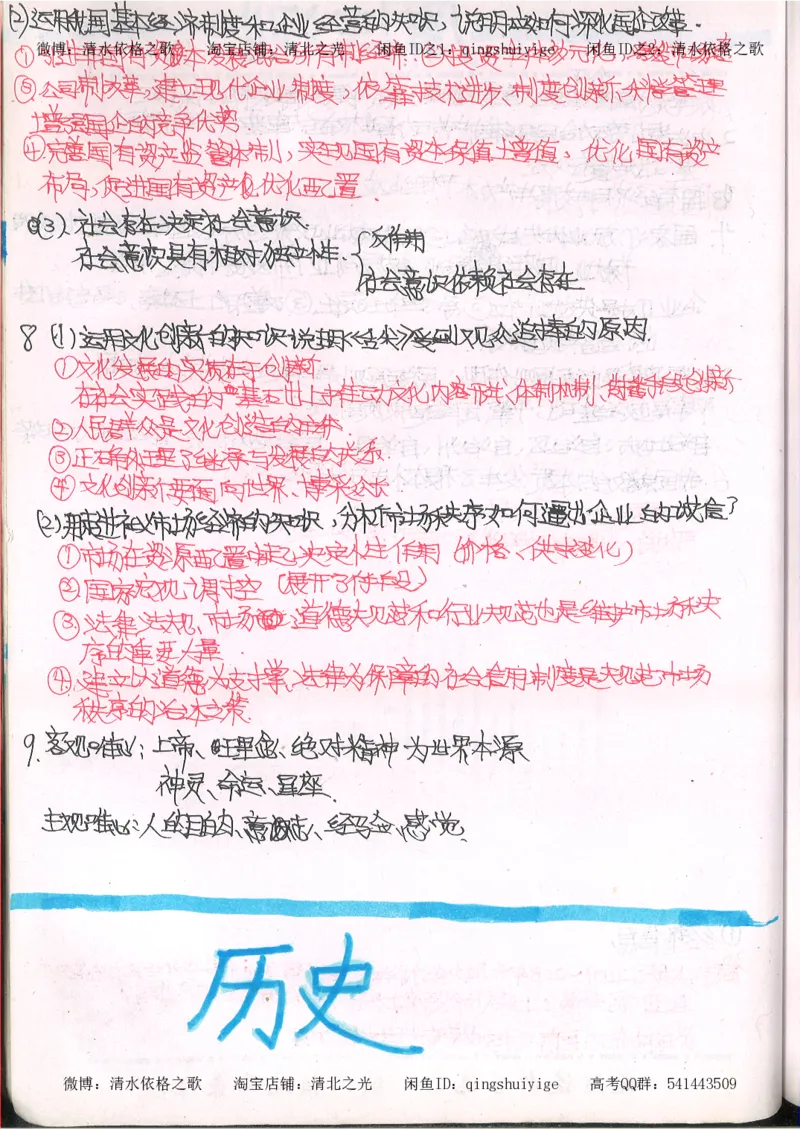 (2)运用我国基本经济制度和企业经营的知识，说明应如何深化国企改革.
微博：清水依格之歌 淘宝店铺：清北之光 闲鱼ID之1：qingshuiyige 闲鱼ID之2：清水依格之歌
③公司制改革，建立现代企业制度，依靠技术进步、制度创新、科学管理
增强国企的竞争优势.
④完善国有资产监管体制，实现国有资本保值增值，优化国有资产
布局，促进国有资产优化配置.
(3). 社会存在决定社会意识
社会意识具有相对独立性. { 反作用
社会意识依赖社会存在
8 (1)运用文化创新的知识说明《舌尖》受到观众追捧的原因.
①文化发展的实质在于创新
在社会实践的基础上推动文化内容形式、体制机制、传播手段创新
②人民群众是文化创造的主体.
③正确处理了继承与发展的关系.
④文化创新要面向世界、博采众长
(2)用走进社会主义市场经济的知识，分析市场秩序如何通过企业的诚信？
①市场在资源配置中起决定性作用（价格、供求变化）
②国家宏观调控（展开了作手段）
③法律法规，市场 道德规范和行业规范也是维护市场秩
序的重要力量
④建立以道德为支撑、法律为保障的社会信用制度是规范市场
秩序的治本之策.
9. 客观唯心：上帝、旺星盒、绝对精神为世界本源
神灵、命运、星座.
主观唯心：人的目的、意志、经验、感觉.
历史
微博：清水依格之歌 淘宝店铺：清北之光 闲鱼ID：qingshuiyige 高考QQ群：541443509